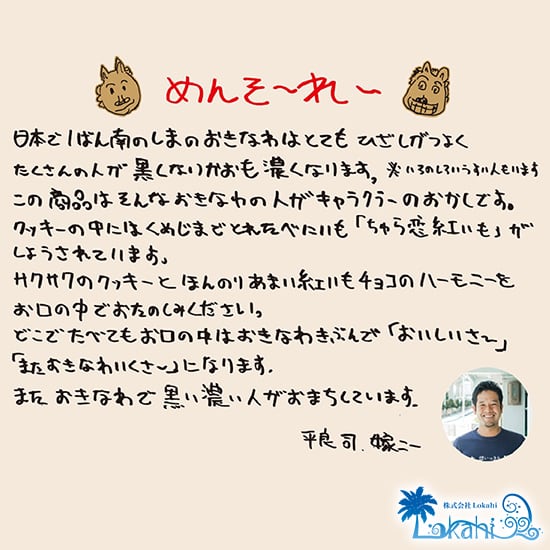 めんそ〜れ〜
日本で1ばん南のしまのおきなわはとても ひざしがつよく
たくさんの人が黒くなりかおも濃くなります。※いろのしろいうすい人もいます
この商品はそんなおきなわの人がキャラクターのおかしです。
クッキーの中にはくめじまでとれたべにいも「ちゅら恋紅いも」が
しようされています。
サクサクのクッキーとほんのりあまい紅いもチョコのハーモニーを
お口の中でおたのしみください。
どこでたべてもお口の中はおきなわきぶんで「おいしいさ〜」
「またおきなわいくさ〜」になります.
また おきなわで黒い濃い人がおまちしています.
平良司.嫁ニー
株式会社Lokahi
Lokahi